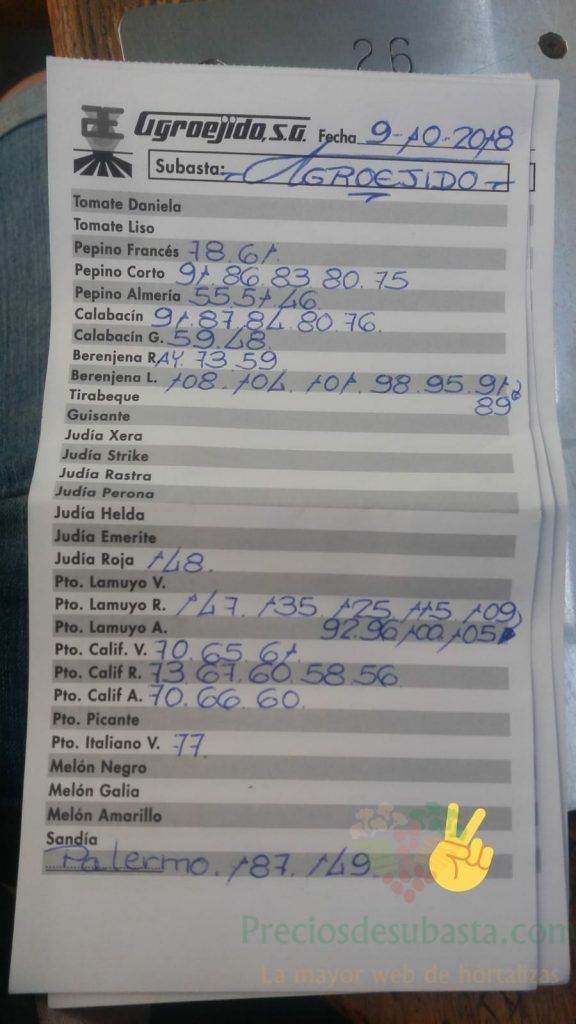 26
Agroejido, S.A. Fecha 9-10-2018
Subasta: AGROEJIDO
Tomate Daniela
Tomate Liso
Pepino Francés 78.61.
Pepino Corto 91.86.83.80.75
Pepino Almería 55.51.46.
Calabacín 91.87.84.80.76.
Calabacín G. 59.48.
Berenjena RAY. 73.59
Berenjena L. 108.104.101.98.95.91.
89
Tirabeque
Guisante
Judía Xera
Judía Strike
Judía Rastra
Judía Perona
Judía Helda
Judía Emerite
Judía Roja 148.
Pto. Lamuyo V.
Pto. Lamuyo R. 147.135.125.115.109
92.96.100.105
Pto. Lamuyo A.
Pto. Calif. V. 70.65.61.
Pto. Calif R. 73.67.60.58.56.
Pto. Calif A. 70.66.60.
Pto. Picante
Pto. Italiano V. 77.
Melón Negro
Melón Galia
Melón Amarillo
Sandía
Palermo. 187.149.
Preciosdesubasta.com
La mayor web de hortalizas